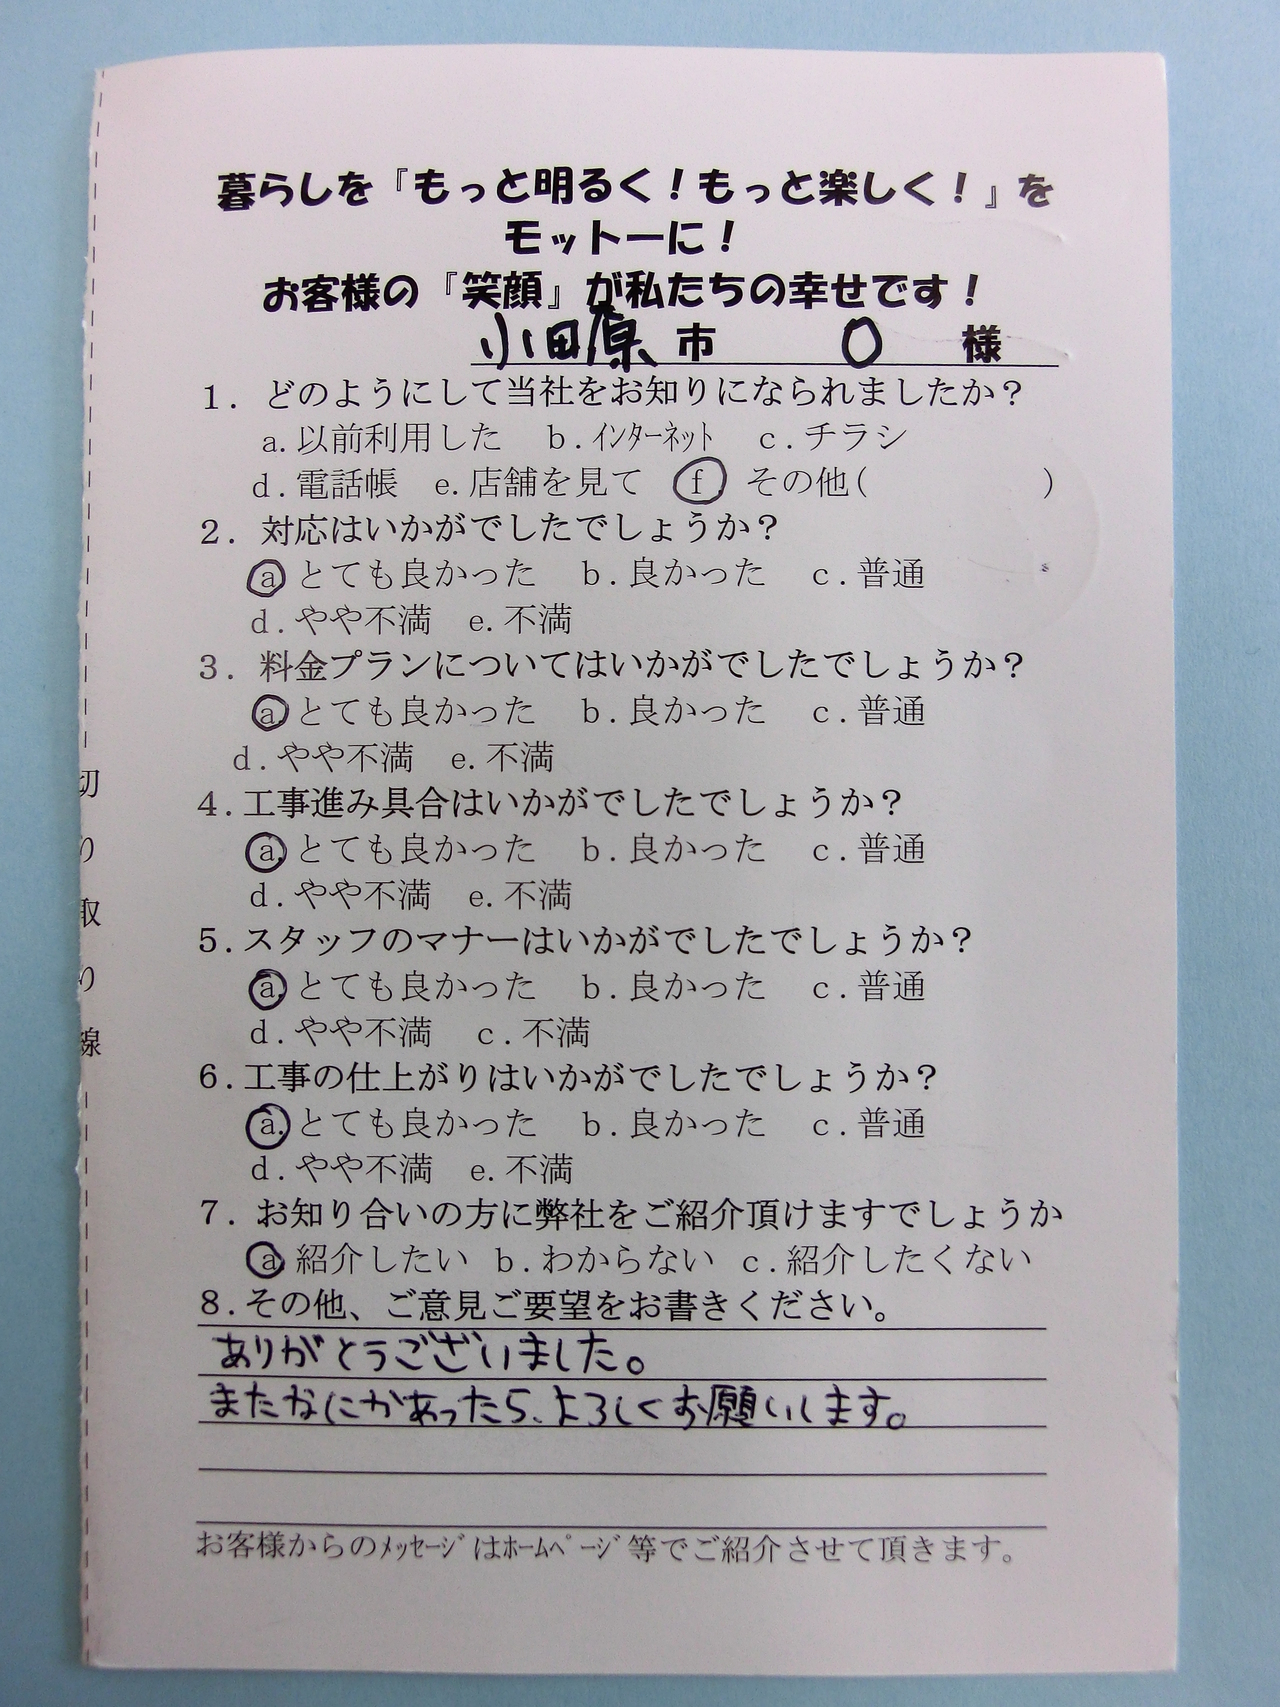 暮らしを『もっと明るく！もっと楽しく！』を
モットーに！
お客様の『笑顔』が私たちの幸せです！
小田原市　O　様
1. どのようにして当社をお知りになられましたか？
a.以前利用した　b.インターネット　c.チラシ
d.電話帳　e.店舗を見て　f　その他(　　　　　)
2. 対応はいかがでしたでしょうか？
a とても良かった　b.良かった　c.普通
d.やや不満　e.不満
3. 料金プランについてはいかがでしたでしょうか？
a.とても良かった　b.良かった　c.普通
d.やや不満　e.不満
4.工事進み具合はいかがでしたでしょうか？
a.とても良かった　b.良かった　c.普通
d.やや不満　e.不満
5.スタッフのマナーはいかがでしたでしょうか？
a.とても良かった　b.良かった　c.普通
d.やや不満　c.不満
6.工事の仕上がりはいかがでしたでしょうか？
a.とても良かった　b.良かった　c.普通
d.やや不満　e.不満
7. お知り合いの方に弊社をご紹介頂けますでしょうか
a 紹介したい　b.わからない　c.紹介したくない
8.その他、ご意見ご要望をお書きください。
ありがとうございました。
またなにかあったら、よろしくお願いします。
お客様からのメッセージはホームページ等でご紹介させて頂きます。
切り取り線